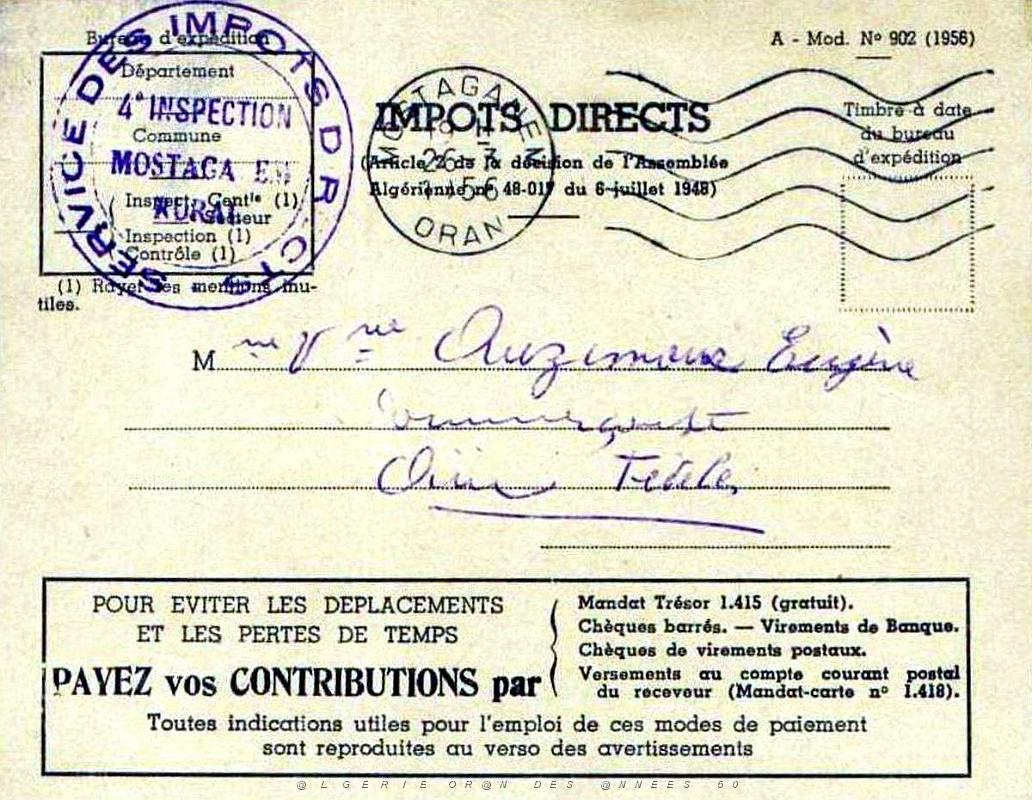 Bureau d'expédition
A - Mod. N° 902 (1956)
SERVICE DES IMPOTS DIRECTS
Département
4° INSPECTION
Commune
MOSTAGA EM
Inspect. Centle (1)
RURAL
Secteur
Inspection (1)
Contrôle (1)
(1) Rayer les mentions inu-
tiles.
IMPOTS DIRECTS
(Article 2 de la décision de l'Assemblée
Algérienne n° 48-017 du 6 juillet 1948)
MOSTAGANEM
26-7
1956
ORAN
Timbre à date
du bureau
d'expédition
M me Vve Eugène
Commerçante
Aïn Tédelès
POUR EVITER LES DEPLACEMENTS
ET LES PERTES DE TEMPS
PAYEZ vos CONTRIBUTIONS par
Mandat Trésor 1.415 (gratuit).
Chèques barrés. — Virements de Banque.
Chèques de virements postaux.
Versements au compte courant postal
du receveur (Mandat-carte n° 1.418).
Toutes indications utiles pour l'emploi de ces modes de paiement
sont reproduites au verso des avertissements
@LGERIE OR@N DES @NNEES 50